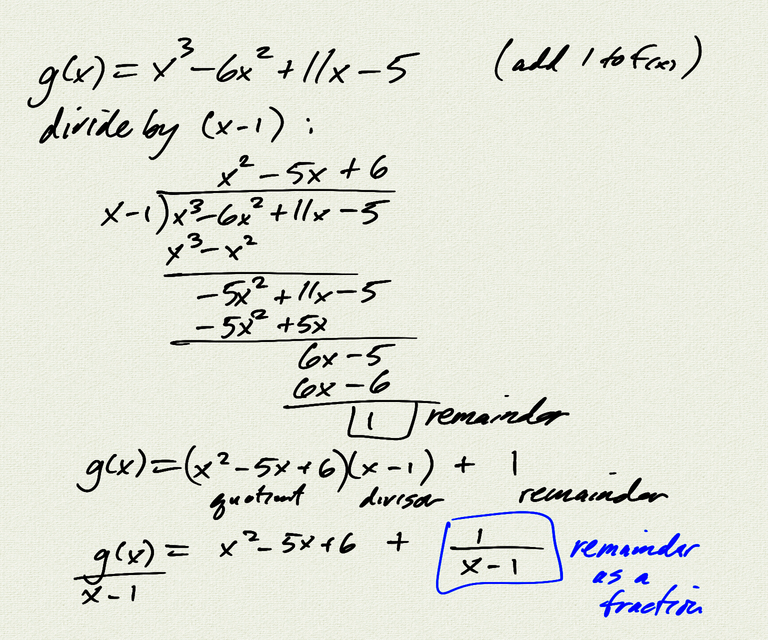 g(x) = x³ - 6x² + 11x - 5 (add 1 to f(x))
divide by (x-1) :
x² - 5x + 6
x-1 ) x³ - 6x² + 11x - 5
x³ - x²
-5x² + 11x - 5
-5x² + 5x
6x - 5
6x - 6
1 remainder
g(x) = (x² - 5x + 6)(x - 1) + 1
quotient divisor remainder
g(x) = x² - 5x + 6 + 1 remainder
x - 1 x - 1 as a
fraction